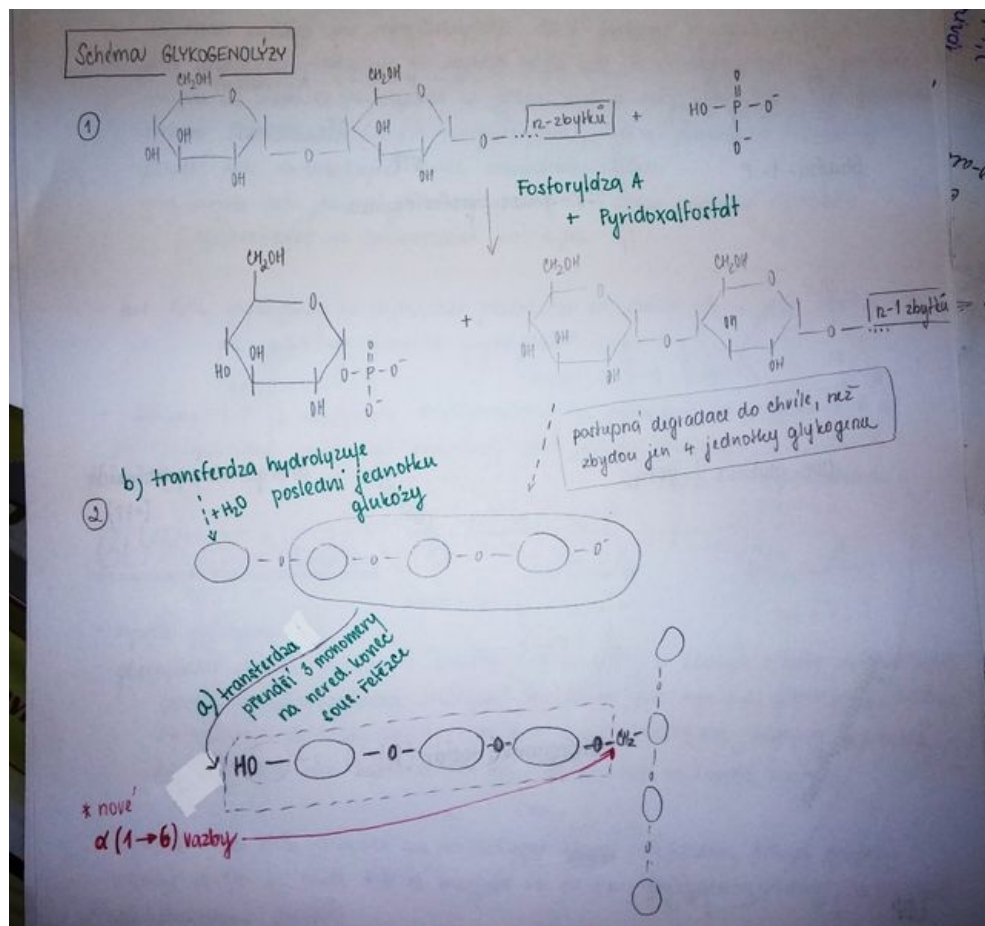 Schéma GLYKOGENOLÝZY
1
CH₂OH
O
OH
OH
OH
O
CH₂OH
O
OH
OH
O-....
n-zbytků
+
O
HO-P-O⁻
O⁻
Fosforyláza A
+ Pyridoxalfosfát
CH₂OH
O
OH
HO
OH
O
O-P-O⁻
O⁻
+
CH₂OH
O
OH
OH
OH
O
CH₂OH
O
OH
OH
O-....
n-1 zbytků
postupná degradace do chvíle, než
zbydou jen 4 jednotky glykogenu
b) transferáza hydrolyzuje
poslední jednotku
glukózy
+H₂O
2
-O- -O- -O- -O⁻
a) transferáza
přenáší 3 monomery
na nered. konec
sous. řetězce
HO- -O- -O- -O-CH₂-
* nové
α (1→6) vazby